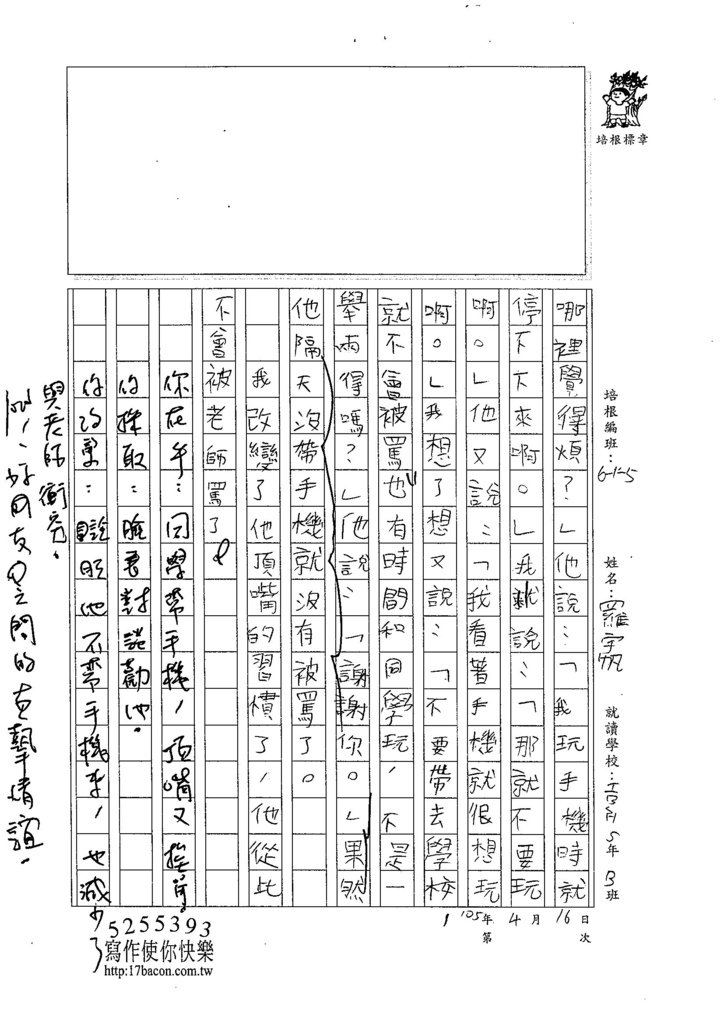 培根標章
培根編班：6-1-5
姓名：羅宇帆
就讀學校：5年B班
105年4月16日
第1次
哪裡覺得煩？」他說：「我玩手機時就
停不下來啊。」我就說：「那就不要玩
啊。」他又說：「我看著手機就很想玩
啊。」我想了想又說：「不要帶去學校
就不會被罵也有時間和同學玩，不是一
舉兩得嗎？」他說：「謝謝你。」果然
他隔天沒帶手機就沒有被罵了。
我改變了他頂嘴的習慣了，他從此
不會被老師罵了。
你在乎：同學帶手機，頂嘴又
你採取：對話勸他。
你改變：說服他不帶手機來，也減少了
與老師衝突。
好同友之間的真摯情誼。
5255393
寫作使你快樂
http:17bacon.com.tw